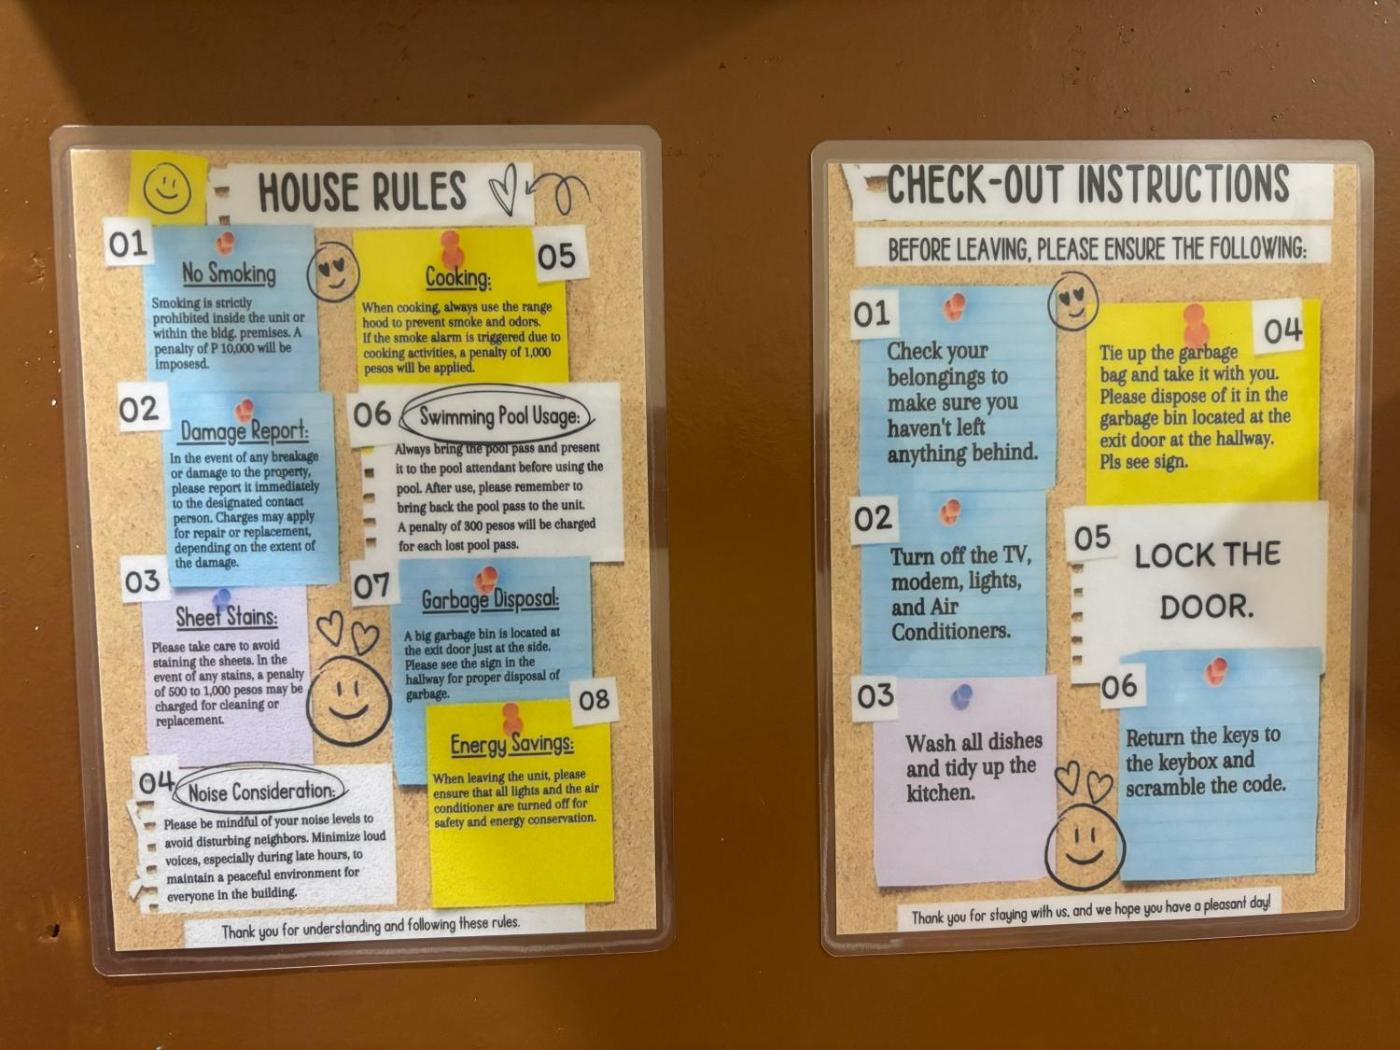 HOUSE RULES
01
No Smoking
Smoking is strictly
prohibited inside the unit or
within the bldg. premises. A
penalty of P 10,000 will be
imposesd.
02
Damage Report:
In the event of any breakage
or damage to the property,
please report it immediately
to the designated contact
person. Charges may apply
for repair or replacement,
depending on the extent of
the damage.
03
Sheet Stains:
Please take care to avoid
staining the sheets. In the
event of any stains, a penalty
of 500 to 1,000 pesos may be
charged for cleaning or
replacement.
04
Noise Consideration:
Please be mindful of your noise levels to
avoid disturbing neighbors. Minimize loud
voices, especially during late hours, to
maintain a peaceful environment for
everyone in the building.
05
Cooking:
When cooking, always use the range
hood to prevent smoke and odors.
If the smoke alarm is triggered due to
cooking activities, a penalty of 1,000
pesos will be applied.
06
Swimming Pool Usage:
Always bring the pool pass and present
it to the pool attendant before using the
pool. After use, please remember to
bring back the pool pass to the unit.
A penalty of 300 pesos will be charged
for each lost pool pass.
07
Garbage Disposal:
A big garbage bin is located at
the exit door just at the side.
Please see the sign in the
hallway for proper disposal of
garbage.
08
Energy Savings:
When leaving the unit, please
ensure that all lights and the air
conditioner are turned off for
safety and energy conservation.
Thank you for understanding and following these rules.
CHECK-OUT INSTRUCTIONS
BEFORE LEAVING, PLEASE ENSURE THE FOLLOWING:
01
Check your
belongings to
make sure you
haven't left
anything behind.
02
Turn off the TV,
modem, lights,
and Air
Conditioners.
03
Wash all dishes
and tidy up the
kitchen.
04
Tie up the garbage
bag and take it with you.
Please dispose of it in the
garbage bin located at the
exit door at the hallway.
Pls see sign.
05
LOCK THE
DOOR.
06
Return the keys to
the keybox and
scramble the code.
Thank you for staying with us, and we hope you have a pleasant day!